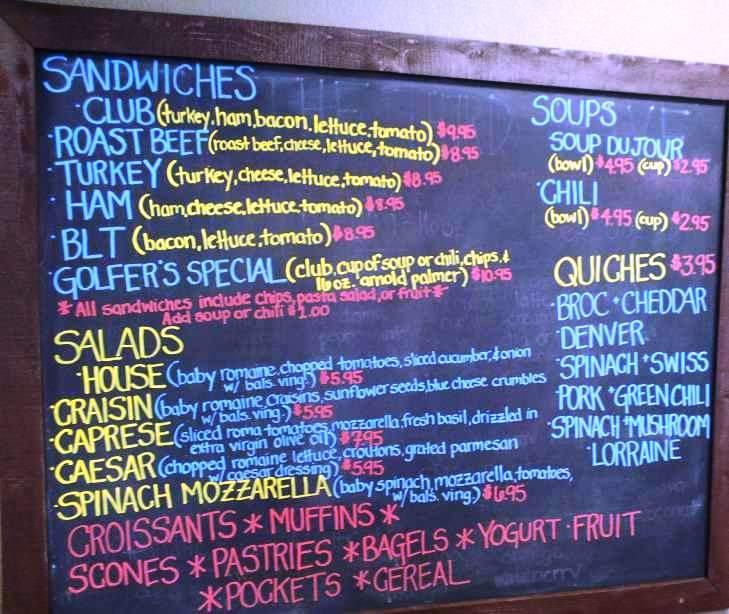 SANDWICHES
·CLUB (turkey, ham, bacon, lettuce, tomato) $9.95
·ROAST BEEF (roast beef, cheese, lettuce, tomato) $8.95
·TURKEY (turkey, cheese, lettuce, tomato) $8.95
·HAM (ham, cheese, lettuce, tomato) $8.95
·BLT (bacon, lettuce, tomato) $8.95
·GOLFER'S SPECIAL (club, cup of soup or chili, chips, &
16 oz. "arnold palmer") $10.95
*All sandwiches include chips, pasta salad, or fruit*
Add soup or chili $1.00
SALADS
·HOUSE (baby romaine, chopped tomatoes, sliced cucumber, & onion
w/ bals. ving.) $5.95
·CRAISIN (baby romaine, craisins, sunflower seeds, blue cheese crumbles
w/ bals. ving.) $5.95
·CAPRESE (sliced roma tomatoes, mozzarella, fresh basil, drizzled in
extra virgin olive oil) $7.95
·CAESAR (chopped romaine lettuce, croutons, grated parmesan
w/ caesar dressing) $5.95
·SPINACH MOZZARELLA (baby spinach, mozzarella, tomatoes,
w/ bals. ving.) $6.95
CROISSANTS * MUFFINS *
SCONES * PASTRIES * BAGELS * YOGURT · FRUIT
* POCKETS * CEREAL
SOUPS
·SOUP DU JOUR
(bowl) $4.95 (cup) $2.95
·CHILI
(bowl) $4.95 (cup) $2.95
QUICHES $3.95
·BROC + CHEDDAR
·DENVER
·SPINACH + SWISS
·PORK + GREEN CHILI
·SPINACH + MUSHROOM
·LORRAINE